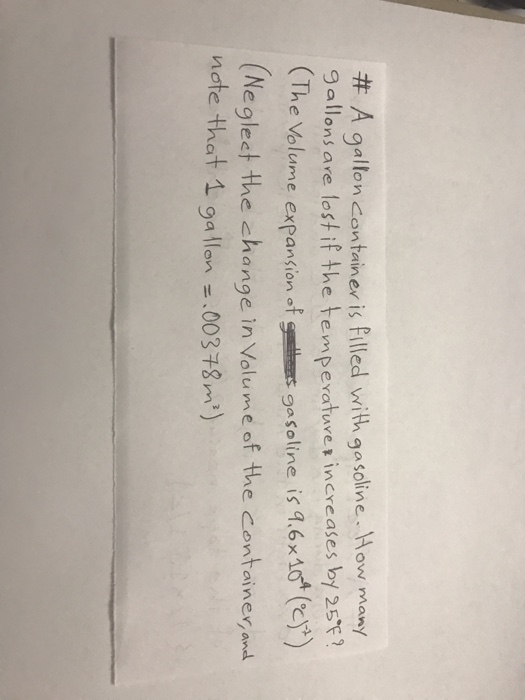 # A gallon container is filled with gasoline. How many
gallons are lost if the temperature increases by 25°F?
(The Volume expansion of gasoline is 9.6x10⁻⁴ (°C)⁻¹)
(Neglect the change in Volume of the container, and
note that 1 gallon = .00378m³)